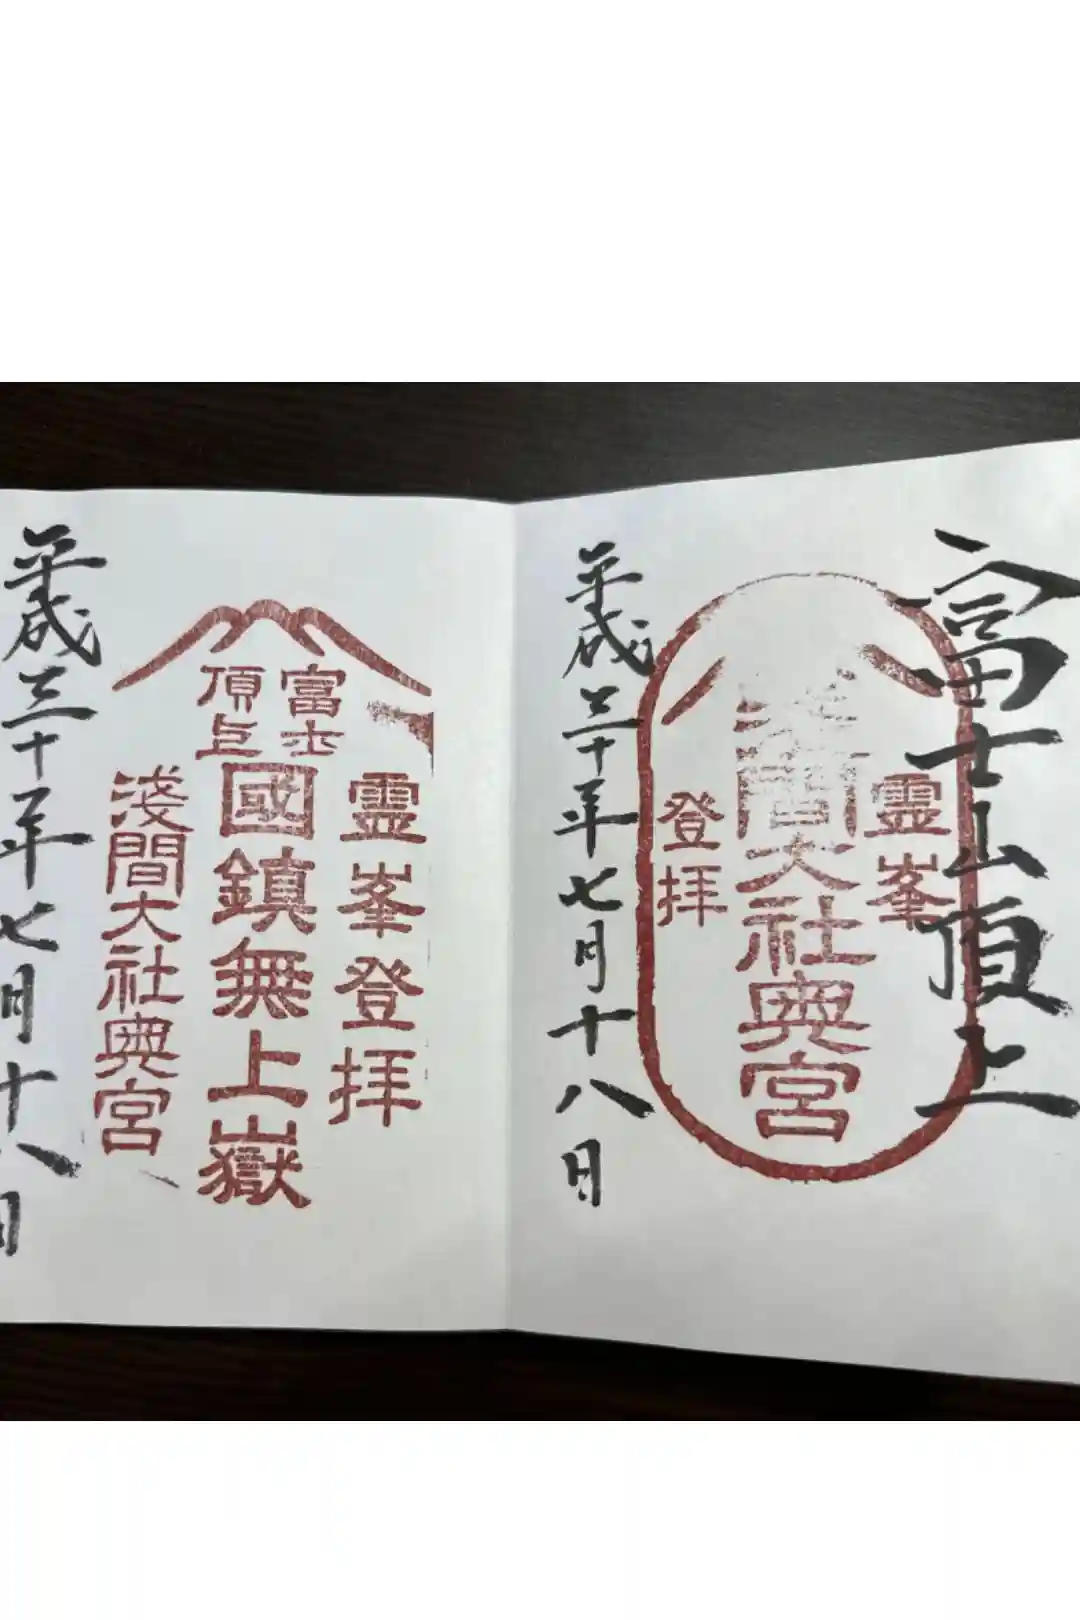 富士山頂上
霊峯
浅間大社奥宮
登拝
平成三十年七月十八日
富士
頂上
霊峯登拝
國鎮無上嶽
淺間大社奥宮
平成三十年七月十八日